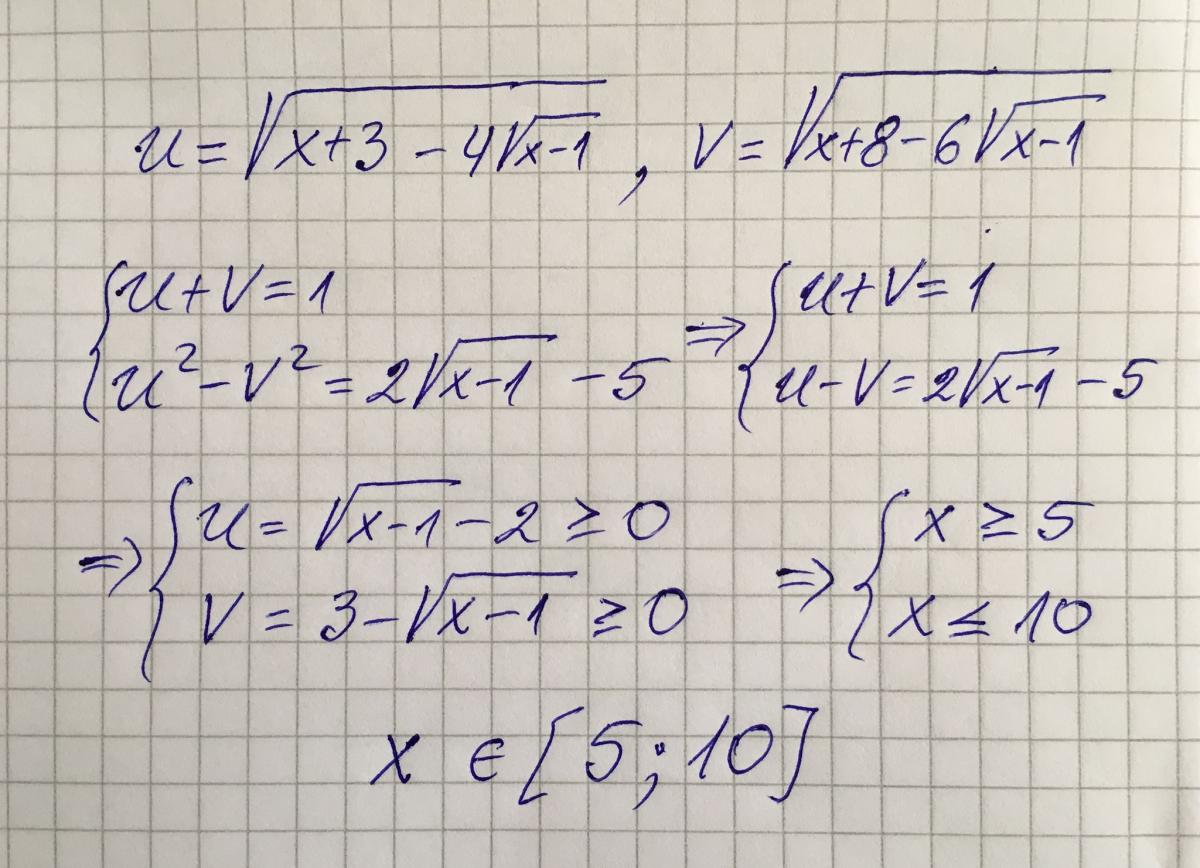 u = √(x+3 - 4√(x-1)) , v = √(x+8 - 6√(x-1))
{ u+v = 1 ⇒ { u+v = 1
{ u² - v² = 2√(x-1) - 5 ⇒ { u - v = 2√(x-1) - 5
⇒ { u = √(x-1) - 2 ≥ 0 ⇒ { x ≥ 5
{ v = 3 - √(x-1) ≥ 0 { x ≤ 10
x ∈ [5; 10]